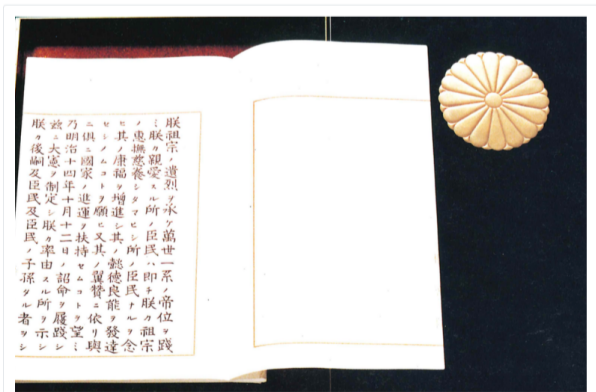 朕祖宗ノ遺烈ヲ承ケ萬世一系ノ帝位ヲ踐
ミ朕カ親愛スル所ノ臣民ハ即チ朕カ祖宗
ノ惠撫慈養シタマヒシ所ノ臣民ナルヲ念
ヒ其ノ康福ヲ增進シ其ノ懿德良能ヲ發達
セシメムコトヲ願ヒ又其ノ翼贊ニ依リ與
ニ俱ニ國家ノ進運ヲ扶持セムコトヲ望ミ
乃明治十四年十月十二日ノ詔命ヲ履踐シ
玆ニ大憲ヲ制定シ朕カ率由スル所ヲ示シ
朕カ後嗣及臣民及臣民ノ子孫タル者ヲシ